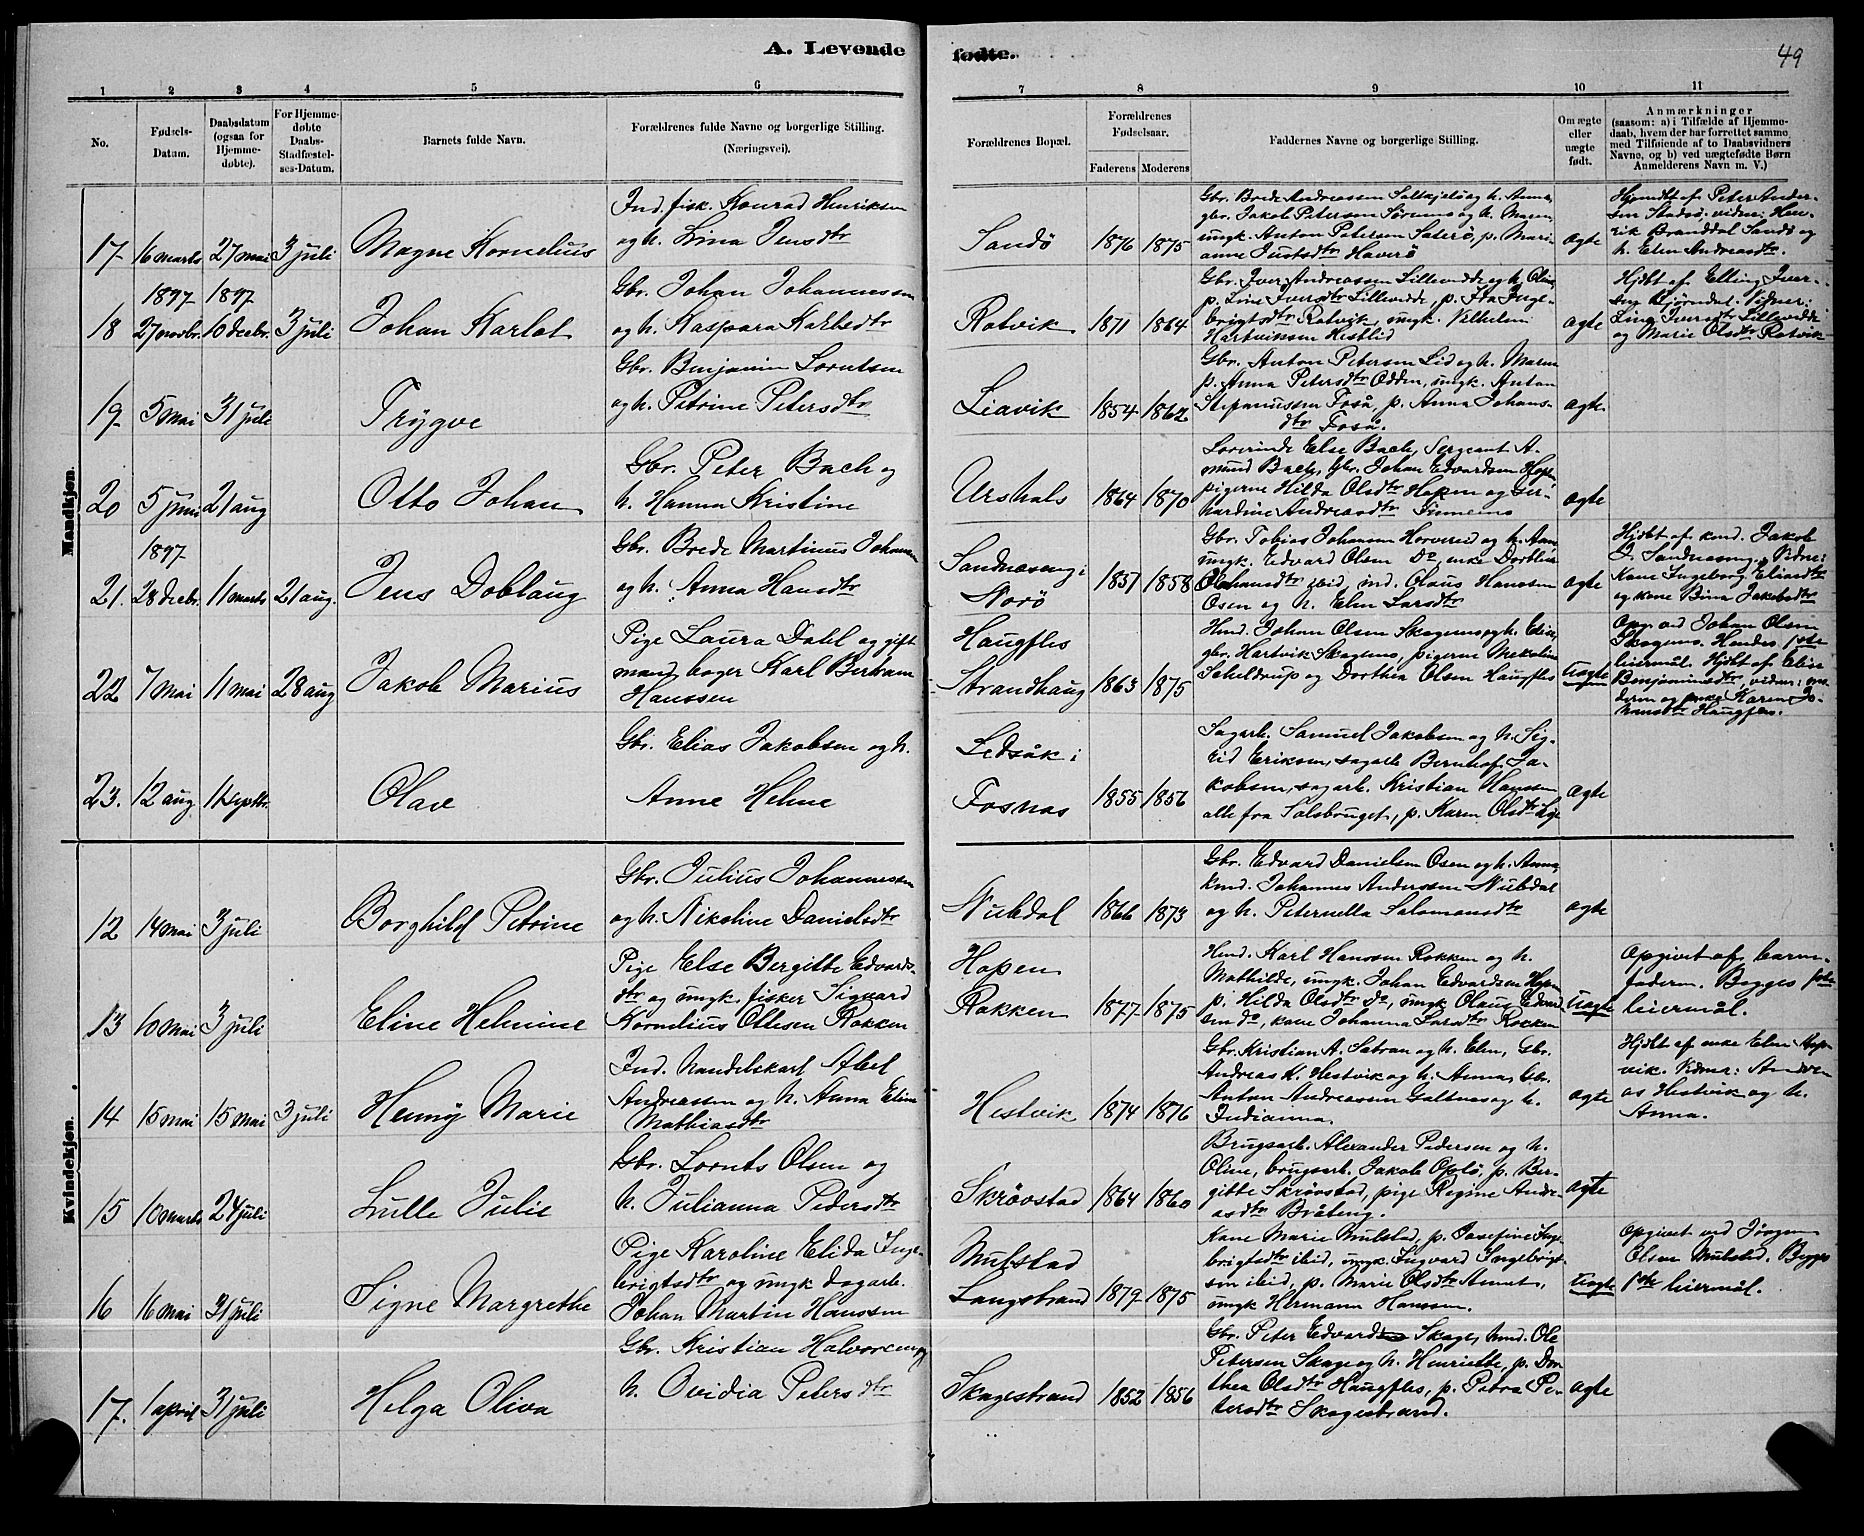 A. Levende fødte.
49
1 2 3 4 5 6 7 8 9 10 11
No.
Fødsels-Datum.
Daabsdatum (ogsaa for Hjemme-døbte).
For Hjemme-døbte Daabs-Stadfæstel-ses-Datum.
Barnets fulde Navn.
Forældrenes fulde Navne og borgerlige Stilling.
(Næringsvei).
Forældrenes Bopæl.
Forældrenes Fødselsaar.
Faderens Moderens
Faddernes Navne og borgerlige Stilling.
Om ægte eller uægte født.
Anmærkninger
(saasom: a) i Tilfælde af Hjemme-
daab, hvem der har forrettet samme
med Tilføiende af to Daabsvidners
Navne, og b) ved uægtefødte Børn
Anmelderens Navn m. V.)
Mandkjøn.
17 16 marts 27 mai 3 juli Magne Kornelius
Ind. fisk. Konrad Henriksen
og h. Lina Jensdtr
Sandö 1876 1875
Gbr. Brede Andreassen Saltkjelö og h. Anna,
gbr. Jakob Petersen Sörenes og h. Maren,
ungk. Anton Petersen Säterö, p. Mari-
anne Justsdtr Haverö
ægte
Hjemdt af Peter Ander-
sen Stadsö, vidner: Hen-
rik Branddal Sandö og
h. Elen Andreasdtr.
18 1897 27 novbr. 1897 10 decbr. 3 juli Johan Karlot
Gbr. Johan Johannessen
og h. Kaspara Kasbedtr
Rotvik 1871 1864
Gbr. Iver Andreassen Lillevedde og h. Oline
p. Line Iversdtr Lillevedde, p. Ida Inge-
brigtsdtr Rotvik, ungk. Vilhelm
Hartviksen Hestlid
ægte
Hjdbt af Elling Iver-
sen Bjørndal. Vidner:
Line Iversdtr Lillevedde
og Marie Olsdtr Rotvik
19 5 mai 31 juli Trygve
Gbr. Benjamin Lorntsen
og h. Petrine Petersdtr
Liavik 1854 1862
Gbr. Anton Petersen Lid og h. Maren
p. Anna Petersdtr Odden, ungk. Anton
Stefanussen Foså, p. Anna Johans-
dtr Foså.
ægte
20 5 juni 21 aug Otto Johan
Gbr. Peter Bach og
h. Hanna Kristine
Urshals 1864 1870
Löverinde Else Bach, Sergeant A-
mund Bach, gbr. Johan Edvardsen Hopen
pigerne Hilda Olsdtr Hopen og
hardine Andreasdtr
ægte
21. 1897 28 decbr. 11 marts 21 aug. Jens Doblaug
Gbr. Brede Martinus Johansen
og h. Anna Hansdtr
Sandnæseng i Norö 1857 1858
Gbr. Tobias Johansen Horvereid og h. Anne
ungk. Edvard Olsen Do, enke Dorthea
Johansdtr ibid, ind. Olaus Hanssen
Osen og h. Elen Larsdtr
ægte
Hjdbt af kmd. Jakob
J. Sandnæseng, Vidner:
Kone Ingeborg Eliasdtr
og kone Bina Jakobsdtr
22 7 mai 11 mai 28 aug Jakob Marius
Pige Laura Dahl og gift
mand bager Karl Bertram
Hanssen
Haugfles
Strandhaug 1863 1875
Hmd. Johan Olsen Skagenes og h. Elise,
gbr. Hartvik Skagenes, pigerne Mekoline
Scheldrup og Dorthea Olsen Haugfles
uægte
Opg. ved Johan Olsen
Skagenes. Handes 1ste
leiermål. Hjdbt af Elise
Benjaminsdtr, vidner: mo-
deren og enke Karen Jo-
hansdtr Haugfles.
23. 12 aug 11 septbr. Olav
Gbr. Elias Jakobsen og h.
Anne Helene
Ledsåk i
Fosnas 1855 1856
Sagarb. Samuel Jakobsen og h. Sig-
rid Eriksen, sagarb. Bernhof Ja-
kobsen, sagarb. Kristian Hanssen
alle fra Salsbruget, p. Karen Olsdtr
ægte
Kvindekjøn.
12 14 mai 3 juli Borghild Petrine
Gbr. Julius Johannessen
og h. Nikoline Danielsdtr
Nubdal 1866 1873
Gbr. Edvard Danielsen Osen og h. Anna,
kmd. Johannes Anderssen Nubdal
og h. Peternella Salomonsdtr
ægte
13 10 mai 3 juli Eline Helmine
Pige Else Bergitte Edvards-
dtr og ungk. fisker Siguard
Kornelius Ollesen Rokken
Hopen
Rokken 1877 1875
Hmd. Karl Hanssen Rokken og h.
Mathilde, ungk. Johan Edvardsen Hopen
p. Hilda Olsdtr Do, ungk Olaus Edvard-
sen do, kone Johanna Larsdtr Rokken
uægte
Opgivet af barne-
faderen. Begges 1ste
leiermål.
14 15 mai 15 mai 3 juli Henny Marie
Ind. handelskarl Abel
Andreassen og h. Anna Elise
Mathiasdtr
Hestvik 1874 1876
Gbr. Kristian A. Satran og h. Elen, Gbr.
Andreas K. Hestvik og h. Anna, Gbr.
Anton Andreassen Galtnes og h.
Indianna.
ægte
Hjdbt af enke Elen
vik. Vidner: Andre-
as Hestvik og h.
Anna.
15 10 marts 24 juli Lulle Julie
Gbr. Lornts Olsen og
h. Julianna Pedersdtr
Skrövstad 1864 1860
Brugsarb. Alexander Pedersen og h.
Oline, brugsarb. Jakob Oplö, p. Ber-
gitte Skrövstad, pige Regine Andre-
asdtr Bråteng.
ægte
16 16 mai 31 juli Signe Margrethe
Pige Karoline Elida Inge-
brigtsdtr og ungk dagarb.
Johan Martin Hanssen
Mulstad
Langstrand 1879 1875
Kone Marie Mulstad, p. Josefine Inge-
brigtsdtr ibid, ungk. Ingvard Ingebrigt-
sen ibid, p. Marie Olsdtr
ungk Hermann Hanssen.
uægte
Opgivet ved Jörgen
Olsen Mulstad. Begges
1ste leiermål.
17. 1 april 31 juli Helga Oliva
Gbr. Kristian Halvorsen og
h. Ovidia Petersdtr
Skagestrand 1852 1856
Gbr. Peter Edvard Skage, hmd. Ole
Petersen Skage og h. Henriette, p. Dor-
thea Olsdtr Haugfles, p. Petra Pe-
tersdtr Skagestrand.
ægte